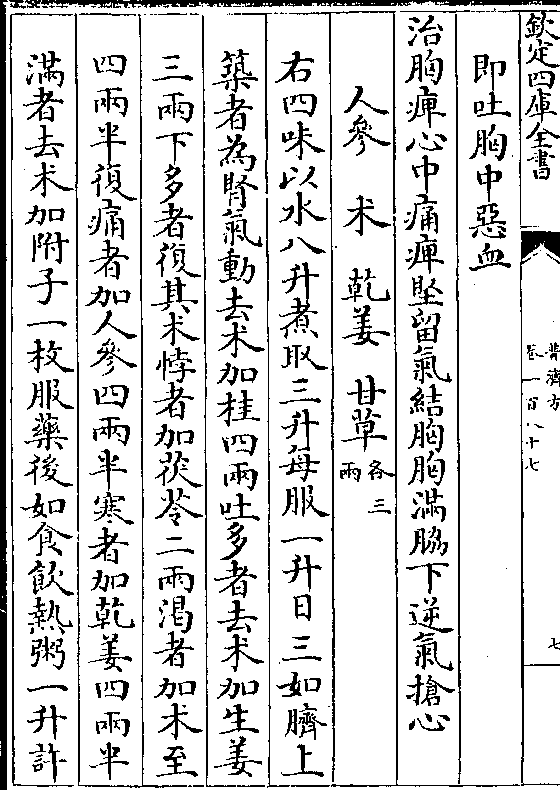 欽定四庫全書
普濟方
卷一百八十七
七
即吐胸中惡血
治胸痺心中痛痺堅留氣結胸胸滿脇下逆氣搶心
人參 术 乾姜 甘草各三兩
右四味以水八升煮取三升每服一升日三如臍上
築者為腎氣動去术加桂四兩吐多者去术加生姜
三兩下多者復其术悸者加茯苓二兩渴者加术至
四兩半復痛者加人參四兩半寒者加乾姜四兩半
滿者去术加附子一枚服藥後如食飲熱粥一升許